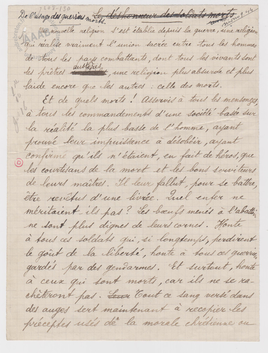 De l'usage des guerriers morts
Le Déshonneur des soldats morts
Une nouvelle religion s'est établie depuis la guerre, une religion
qui réalise vraiment l'union sacrée entre tous les hommes
de tous les pays combattants, dont tous les vivants sont
les prêtres, une religion plus absurde et plus
laide encore que les autres : celle des morts.
Et de quels morts ! Asservis à tous les mensonges,
à tous les commandements d'une société basée sur
la réalité la plus basse de l'homme, ayant
prouvé leur impuissance à désobéir, ayant
confirmé qu'ils n'étaient, en fait de héros, que
les courtisans de la mort et les bons serviteurs
de leurs maîtres. Il leur fallut, pour se battre,
être revêtus d'une livrée. Quel enfer ne
méritaient-ils pas ? Les bœufs menés à l'abattoir
ne sont plus dignes de leurs cornes. Honte
à tous ces soldats qui, si longtemps, perdirent
le goût de la liberté, honte à tous ces guerriers
gardés par des gendarmes. Et surtout, honte
à ceux qui sont morts, car ils ne se ra-
chèteront pas. Tout ce sang versé dans
des auges sert maintenant à recopier les
préceptes usés de la morale chrétienne ou